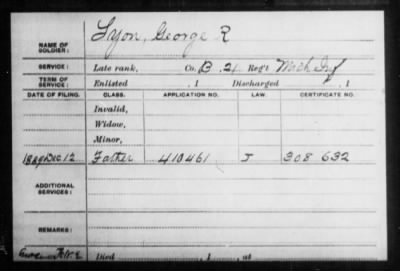 NAME OF SOLDIER: Lyon, George R
SERVICE: Late rank, Co. B, 21 Reg't Mich Inf
TERM OF SERVICE: Enlisted , 1 Discharged , 1
DATE OF FILING. CLASS. APPLICATION NO. LAW. CERTIFICATE NO.
Invalid,
Widow,
Minor,
1889 Dec 12 Father 410461 J 308 632
ADDITIONAL SERVICES:
REMARKS:
Died , 1 , at